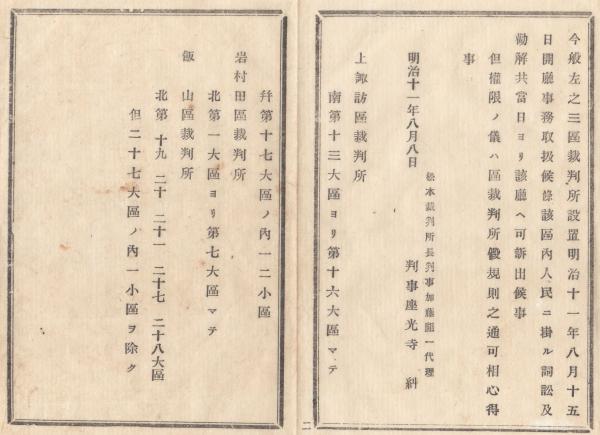 今般左之三區裁判所設置明治十一年八月十五
日開廳事務取扱候條該區內人民ニ掛ル詞訟及
勸解共當日ヨリ該廳ヘ可訴出候事
但權限ノ儀ハ區裁判所假規則之通可相心得
事
明治十一年八月八日
松本裁判所長判事加藤祖一代理
判事座光寺 糾
上諏訪區裁判所
南第十三大區ヨリ第十六大區マテ
幷第十七大區ノ內一二小區
岩村田區裁判所
北第一大區ヨリ第七大區マテ
飯山區裁判所
北第十九 二十 二十一 二十七 二十八大區
但二十七大區ノ內一小區ヲ除ク
二